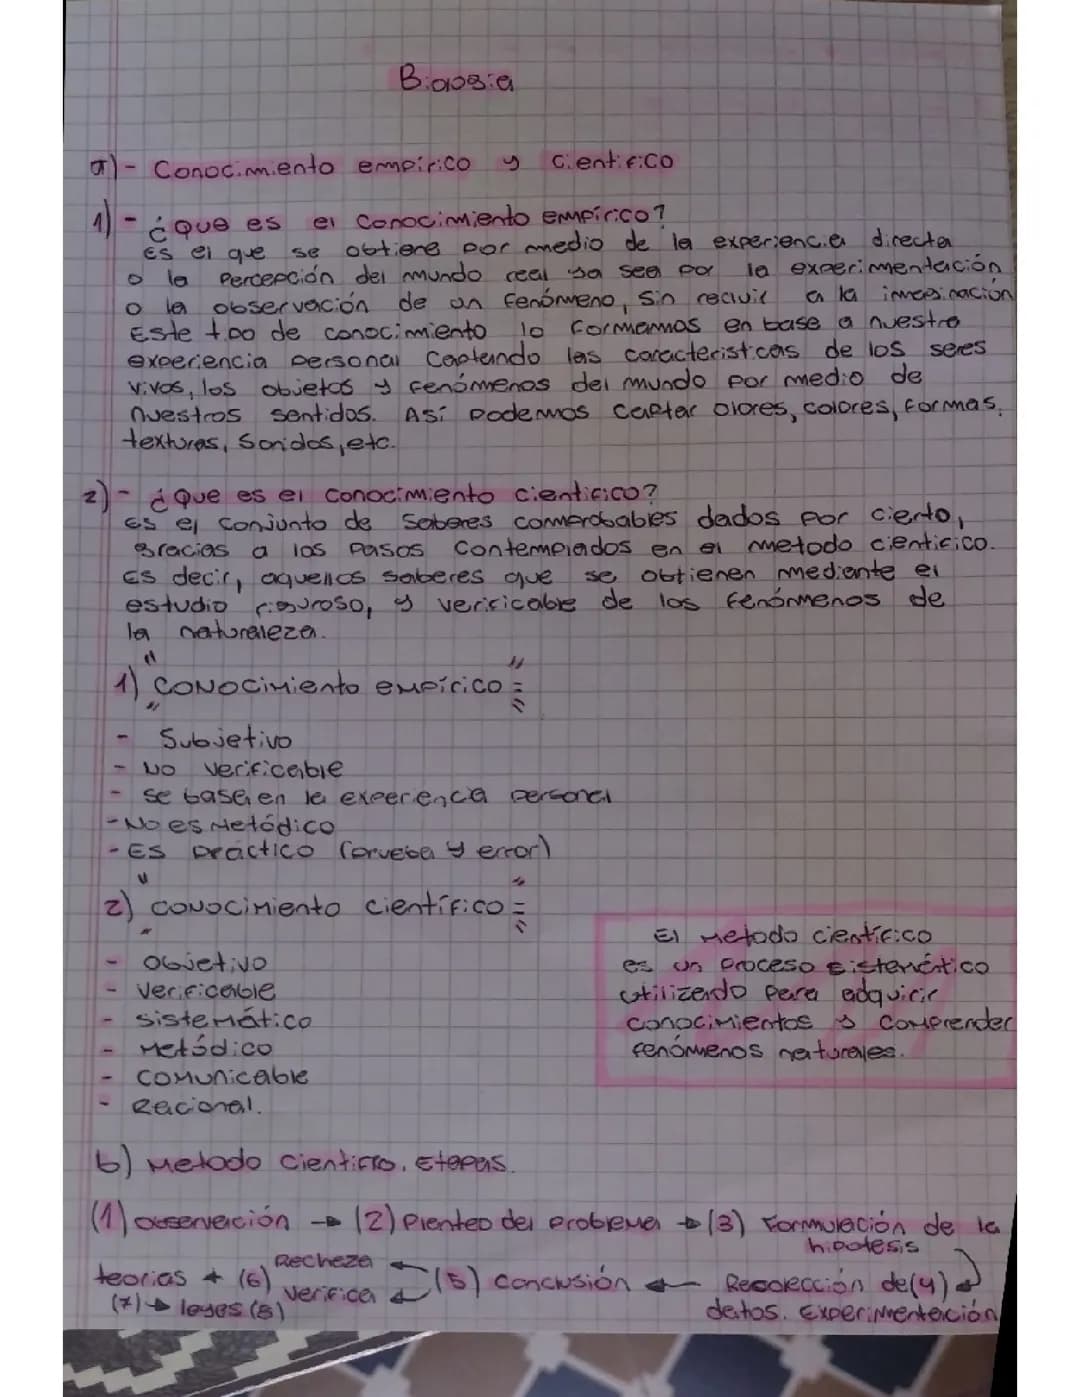 Biología
a)- Conocimiento empírico y Cientifico
1)- ¿Que es el Conocimiento empírico?
Es el que se obtiene por medio de la experiencia directa
o la Percepción del mundo real ya sea por la experimentación
o la observación de un fenómeno, sin recivir a la imaginación
Este tipo de conocimiento lo formamos en base a nuestra
experiencia personal Captando las caracteristicas de los seres
vivos, los objetos y fenómenos del mundo por medio de
nuestros sentidos. Así Podemos captar olores, colores, formas,
texturas, sonidos, etc.
2)- ¿Que es el conocimiento cientifico?
Es el conjunto de Saberes comprobables dados por cierto,
gracias a los pasos contemplados en el metodo cientifico.
Es decir, aquellos saberes que se obtienen mediante el
estudio riguroso, y verificable de los fenómenos de
la naturaleza.
1) "Conocimiento empírico":
- Subjetivo
- No verificable
- se basa en la experiencia personal
- No es Metódico
- Es práctico (prueba y error)
2) "Conocimiento científico":
- Objetivo
- Verificable
- Sistemático
- Metódico
- Comunicable
- Racional.
El Metodo científico
es un proceso sistemático
utilizado para adquirir
conocimientos y comprender
fenómenos naturales.
b) Metodo Cientifico. Etapas.
(1) observación → (2) Planteo del problema → (3) Formulación de la
hipotesis
teorias ← (6) Rechaza ← (5) Conclusión ← Recolección de (4)
(7) → leyes (8) Verifica ← datos. Experimentación